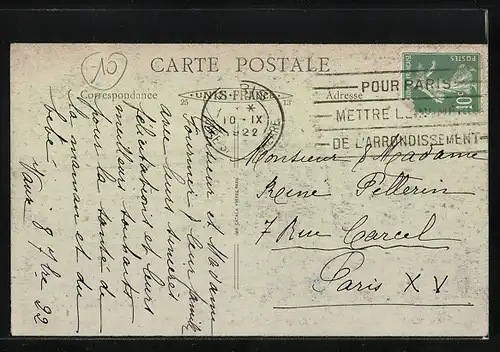 -15
CARTE POSTALE
Correspondance
Adresse
25
13
UNIS FRANCE
10 - IX
22
POSTES
10
POUR PARIS
METTRE
DE L'ARRONDISSEMENT
Monsieur & Madame
Reine Pellerin
7 Rue Carcel
Paris XV
Monsieur et Madame
& leur famille
avec leurs sincères
félicitations et leurs
meilleurs souhaits
pour la santé de
la maman et du
bébé
8 7bre 22